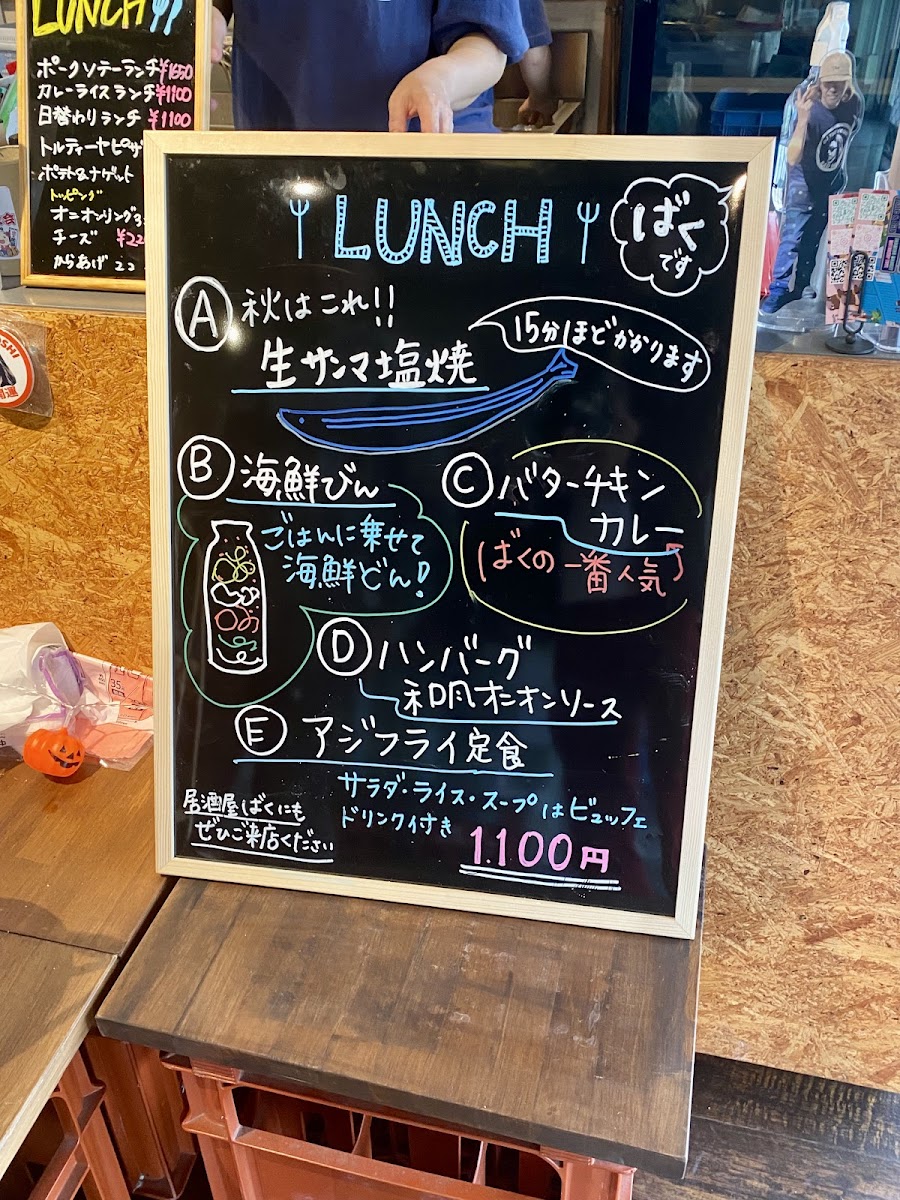 LUNCH
ポークソテーランチ¥1650
カレーライスランチ¥1100
日替わりランチ ¥1100
トルティーヤピザ
ポテト&ナゲット
トッピング
オニオンリング
チーズ ¥22
からあげ
LUNCH
ばく
です
A 秋はこれ!!
生サンマ塩焼
15分ほどかかります
B 海鮮びん
ごはんに乗せて
海鮮どん!
C バターチキン
カレー
ばくの一番人気
D ハンバーグ
和風オニオンソース
E アジフライ定食
サラダ・ライス・スープはビュッフェ
ドリンク付き
1.100円
居酒屋ばくにも
ぜひご来店ください